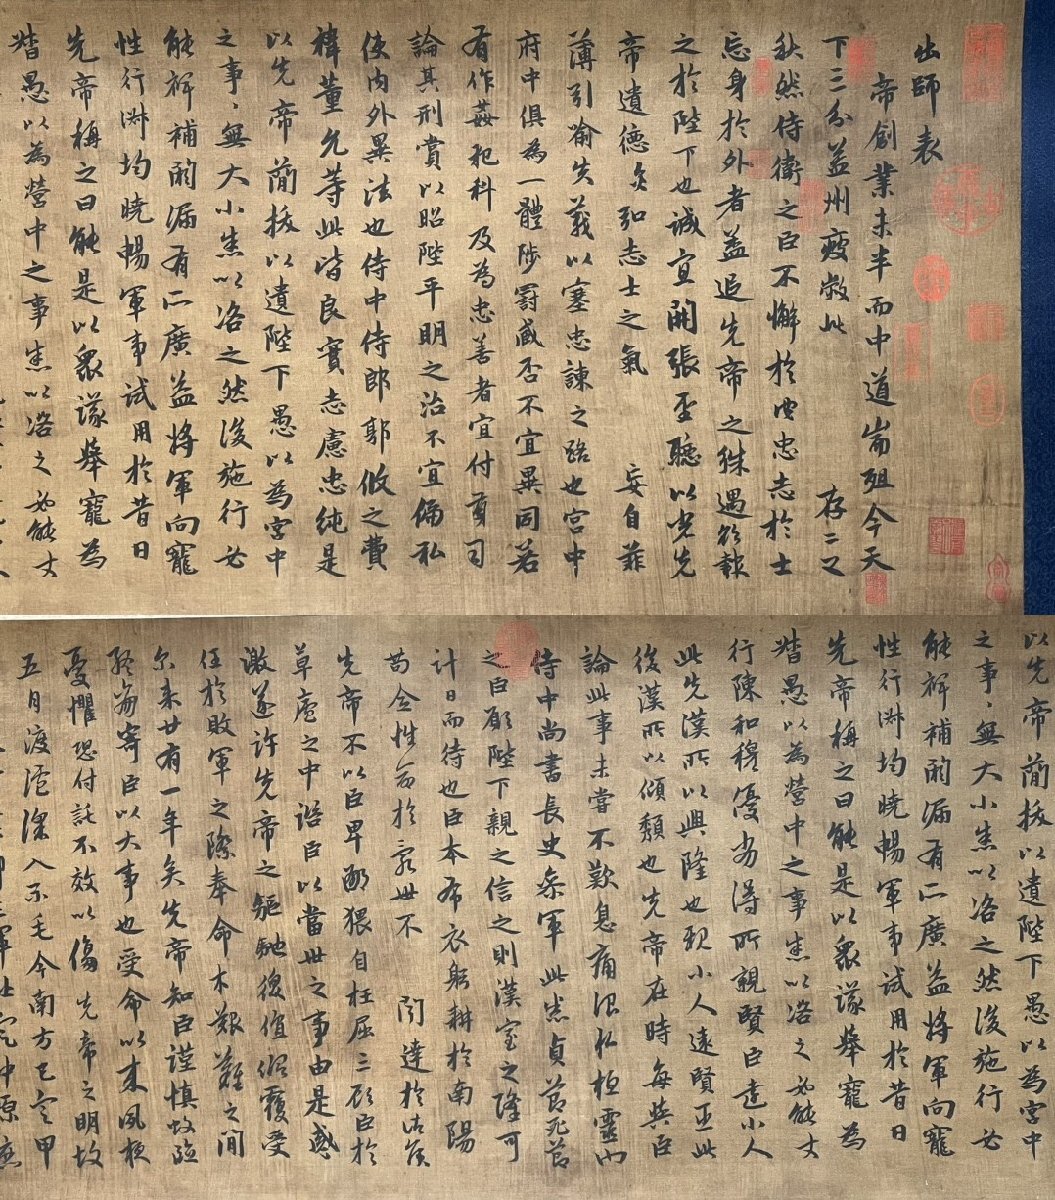 出師表
帝創業未半而中道崩殂今天
下三分益州疲敝此 存亡之
秋然侍衛之臣不懈於内忠志於士
忘身於外者蓋追先帝之殊遇欲報
之於陛下也誠宜開張聖聽以光先
帝遺德 弘志士之氣 妄自菲
薄引喻失義以塞忠諫之路也宮中
府中俱為一體陟罰臧否不宜異同若
有作姦犯科及為忠善者宜付有司
論其刑賞以昭陛平明之治不宜偏私
使内外異法也侍中侍郎郭攸之費
禕董允等此皆良實志慮忠純是
以先帝簡拔以遺陛下愚以為宮中
之事、無大小悉以咨之然後施行必
能裨補闕漏有所廣益將軍向寵
性行淑均曉暢軍事試用於昔日
先帝稱之曰能是以衆議舉寵為
督愚以為營中之事悉以咨之必能使
以先帝簡拔以遺陛下愚以為宮中
之事、無大小悉以咨之然後施行必
能裨補闕漏有所廣益將軍向寵
性行淑均曉暢軍事試用於昔日
先帝稱之曰能是以衆議舉寵為
督愚以為營中之事悉以咨之必能使
行陳和穆優劣得所親賢臣遠小人
此先漢所以興隆也親小人遠賢臣此
後漢所以傾頹也先帝在時每與臣
論此事未嘗不歎息痛恨於桓靈也
侍中尚書長史參軍此悉貞亮死節
之臣願陛下親之信之則漢室之隆可
計日而待也臣本布衣躬耕於南陽
苟全性命於亂世不 聞達於諸侯
先帝不以臣卑鄙猥自枉屈三顧臣於
草廬之中諮臣以當世之事由是感
激遂許先帝之驅馳後值傾覆受
任於敗軍之際奉命於艱難之間
尒來廿有一年矣先帝知臣謹慎故臨
終崩寄臣以大事也受命以來夙夜
憂懼恐付託不效以傷先帝之明故
五月渡瀘深入不毛今南方已定甲